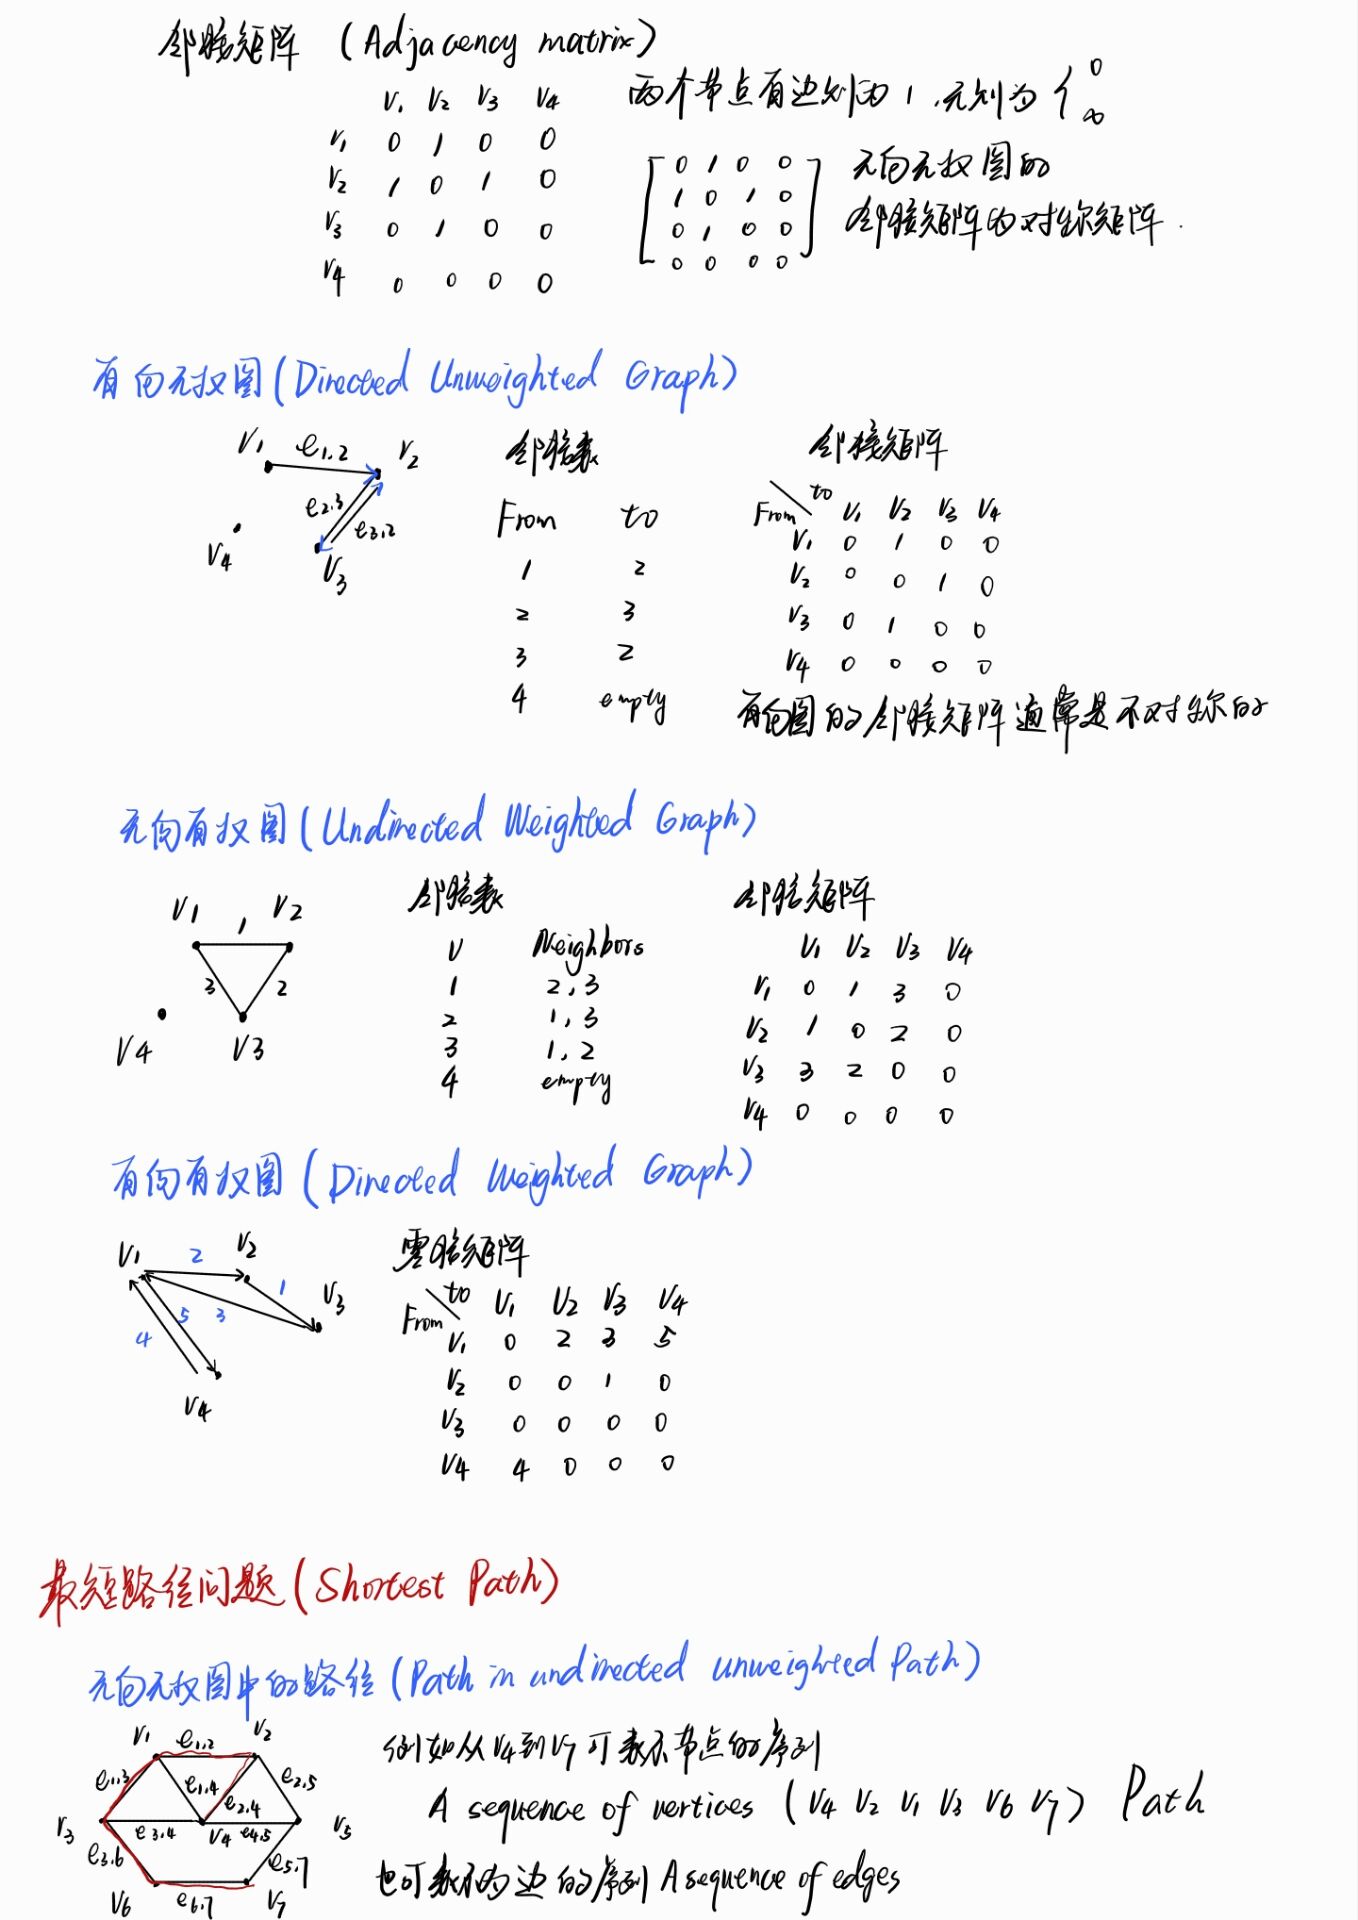 邻接矩阵 (Adjacency matrix)
两个节点有边则为 1，无则为 { 0 ∞
V1 V2 V3 V4
V1 0 1 0 0
V2 1 0 1 0
V3 0 1 0 0
V4 0 0 0 0
0 1 0 0
1 0 1 0
0 1 0 0
0 0 0 0
无向无权图的
邻接矩阵为对称矩阵.
有向无权图 (Directed Unweighted Graph)
V1 e1,2 V2
e2,3 e3,2
V4 V3
邻接表
From to
1 2
2 3
3 2
4 empty
邻接矩阵
From to V1 V2 V3 V4
V1 0 1 0 0
V2 0 0 1 0
V3 0 1 0 0
V4 0 0 0 0
有向图的邻接矩阵通常是不对称的
无向有权图 (Undirected Weighted Graph)
V1 1 V2
3 2
V4 V3
邻接表
V Neighbors
1 2,3
2 1,3
3 1,2
4 empty
邻接矩阵
V1 V2 V3 V4
V1 0 1 3 0
V2 1 0 2 0
V3 3 2 0 0
V4 0 0 0 0
有向有权图 (Directed Weighted Graph)
V1 2 V2
1 V3
4 5 3
V4
零接矩阵
From to V1 V2 V3 V4
V1 0 2 3 5
V2 0 0 1 0
V3 0 0 0 0
V4 4 0 0 0
最短路径问题 (Shortest Path)
无向无权图中的路径 (Path in undirected unweighted Path)
V1 e1,2 V2
e1,3 e1,4 e2,4 e2,5
V3 e3,4 V4 e4,5 V5
e3,6 e5,7
V6 e6,7 V7
例如从V4到V7可表示节点的序列
A sequence of vertices (V4 V2 V1 V3 V6 V7) Path
也可表示为边的序列 A sequence of edges